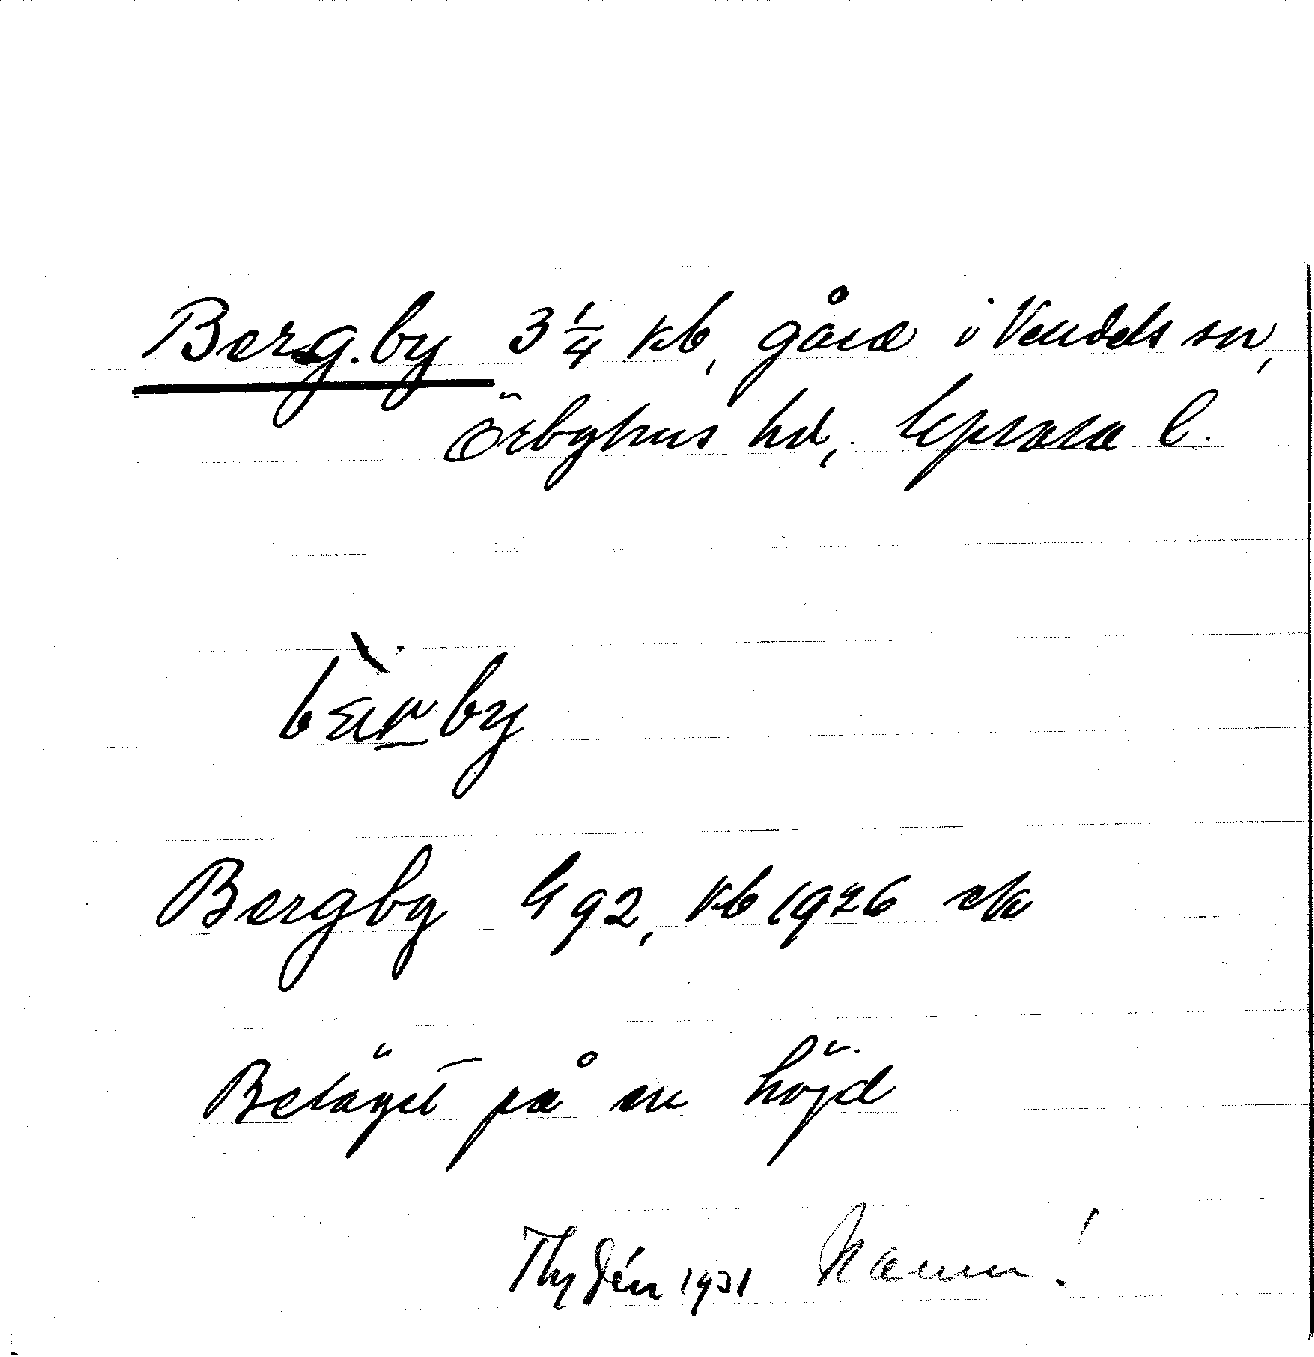 Bergby 3 1/4 kb, gård i Vendels sn,
Örbyhus hd, Uppsala l.
bärby
Bergby G 92, kb 1926 rk
Beläget på en höjd
Tydén 1931 Namn!